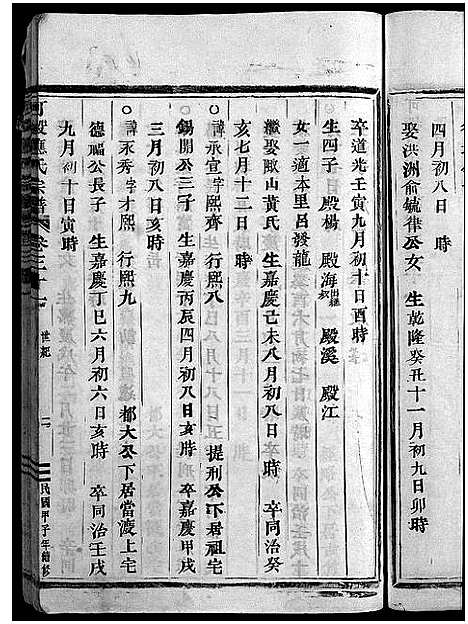 四月初八日　時
娶洪洲俞毓律公女　生乾隆癸丑十一月初九日卯時
卒道光壬寅九月初十日酉時
生四子　殿楊　殿海出繼　殿溪　殿江
女一適本里呂發龍
繼娶畝山黃氏　生嘉慶己未八月初八日　時　卒同治癸
亥七月十二日　時
○諱永宣字熙齊　行熙八　提刑公下居祖宅
錫開公三子　生嘉慶丙辰四月初八日亥時　卒嘉慶甲戌
三月初八日亥時
○諱永秀字才熙　行熙九　都大公下居當渡上宅
德福公長子　生嘉慶丁巳六月初六日亥時　卒同治壬戌
九月初十日寅時
應氏宗譜　卷之三十七　世紀　二　民國甲子年續修